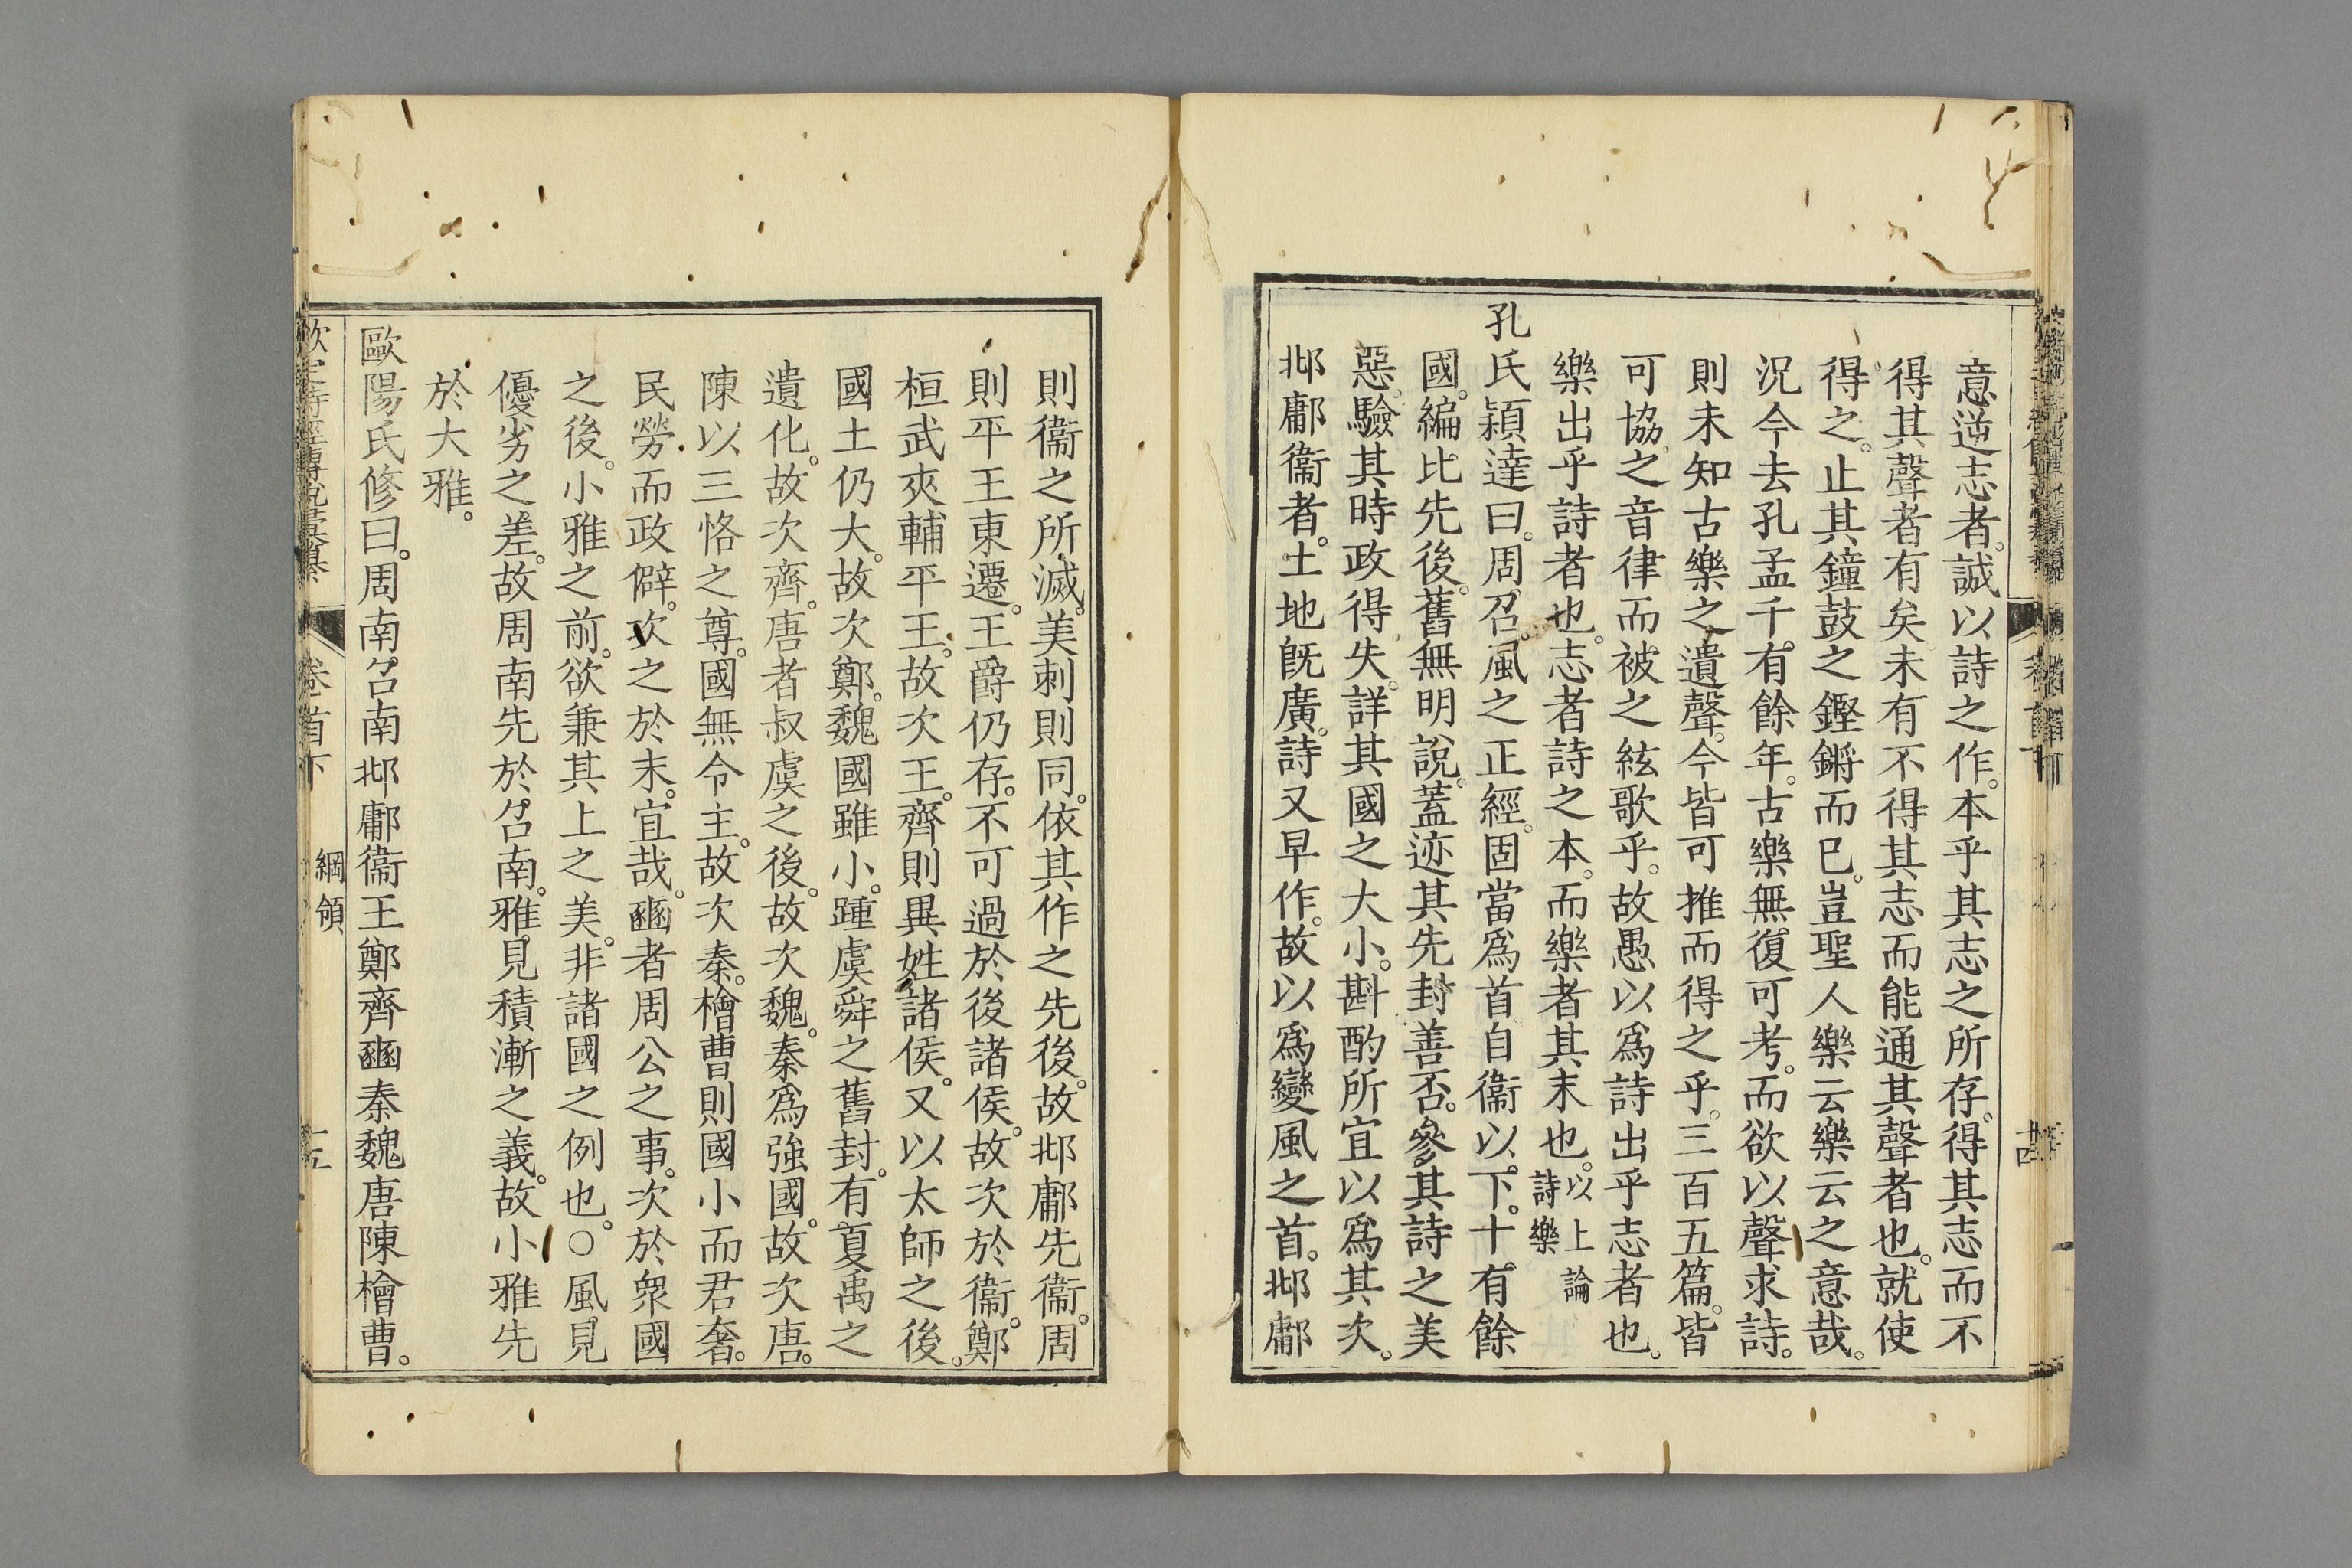 意逆志者。誠以詩之作。本乎其志之所存。得其志而不
得其聲者有矣。未有不得其志而能通其聲者也。就使
得之。止其鐘鼓之鏗鏘而已。豈聖人樂云樂云之意哉。
況今去孔孟千有餘年。古樂無復可考。而欲以聲求詩。
則未知古樂之遺聲。今皆可推而得之乎。三百五篇。皆
可協之音律而被之絃歌乎。故愚以爲詩出乎志者也。
樂出乎詩者也。志者詩之本。而樂者其末也。以上論
詩樂
孔氏穎達曰。周召。風之正經。固當爲首。自衞以下。十有餘
國。編比先後。舊無明說。蓋迹其先封善否。參其詩之美
惡。驗其時政得失。詳其國之大小。斟酌所宜以爲其次。
邶鄘衞者。土地旣廣。詩又早作。故以爲變風之首。邶鄘
則衞之所滅。美刺則同。依其作之先後。故邶鄘先衞。周
則平王東遷。王爵仍存。不可過於後諸侯。故次於衞。鄭
桓武夾輔平王。故次王。齊則異姓諸侯。又以太師之後。
國土仍大。故次鄭。魏國雖小。踵虞舜之舊封。有夏禹之
遺化。故次齊。唐者叔虞之後。故次魏。秦爲強國。故次唐。
陳以三恪之尊。國無令主。故次秦。檜曹則國小而君奢。
民勞而政僻。次之於末。宜哉。豳者周公之事。次於衆國
之後。小雅之前。欲兼其上之美。非諸國之例也。○風。見
優劣之差。故周南先於召南。雅。見積漸之義。故小雅先
於大雅。
歐陽氏修曰。周南召南邶鄘衞王鄭齊豳秦魏唐陳檜曹。
欽定詩經傳說彙纂 卷首下 綱領 十五